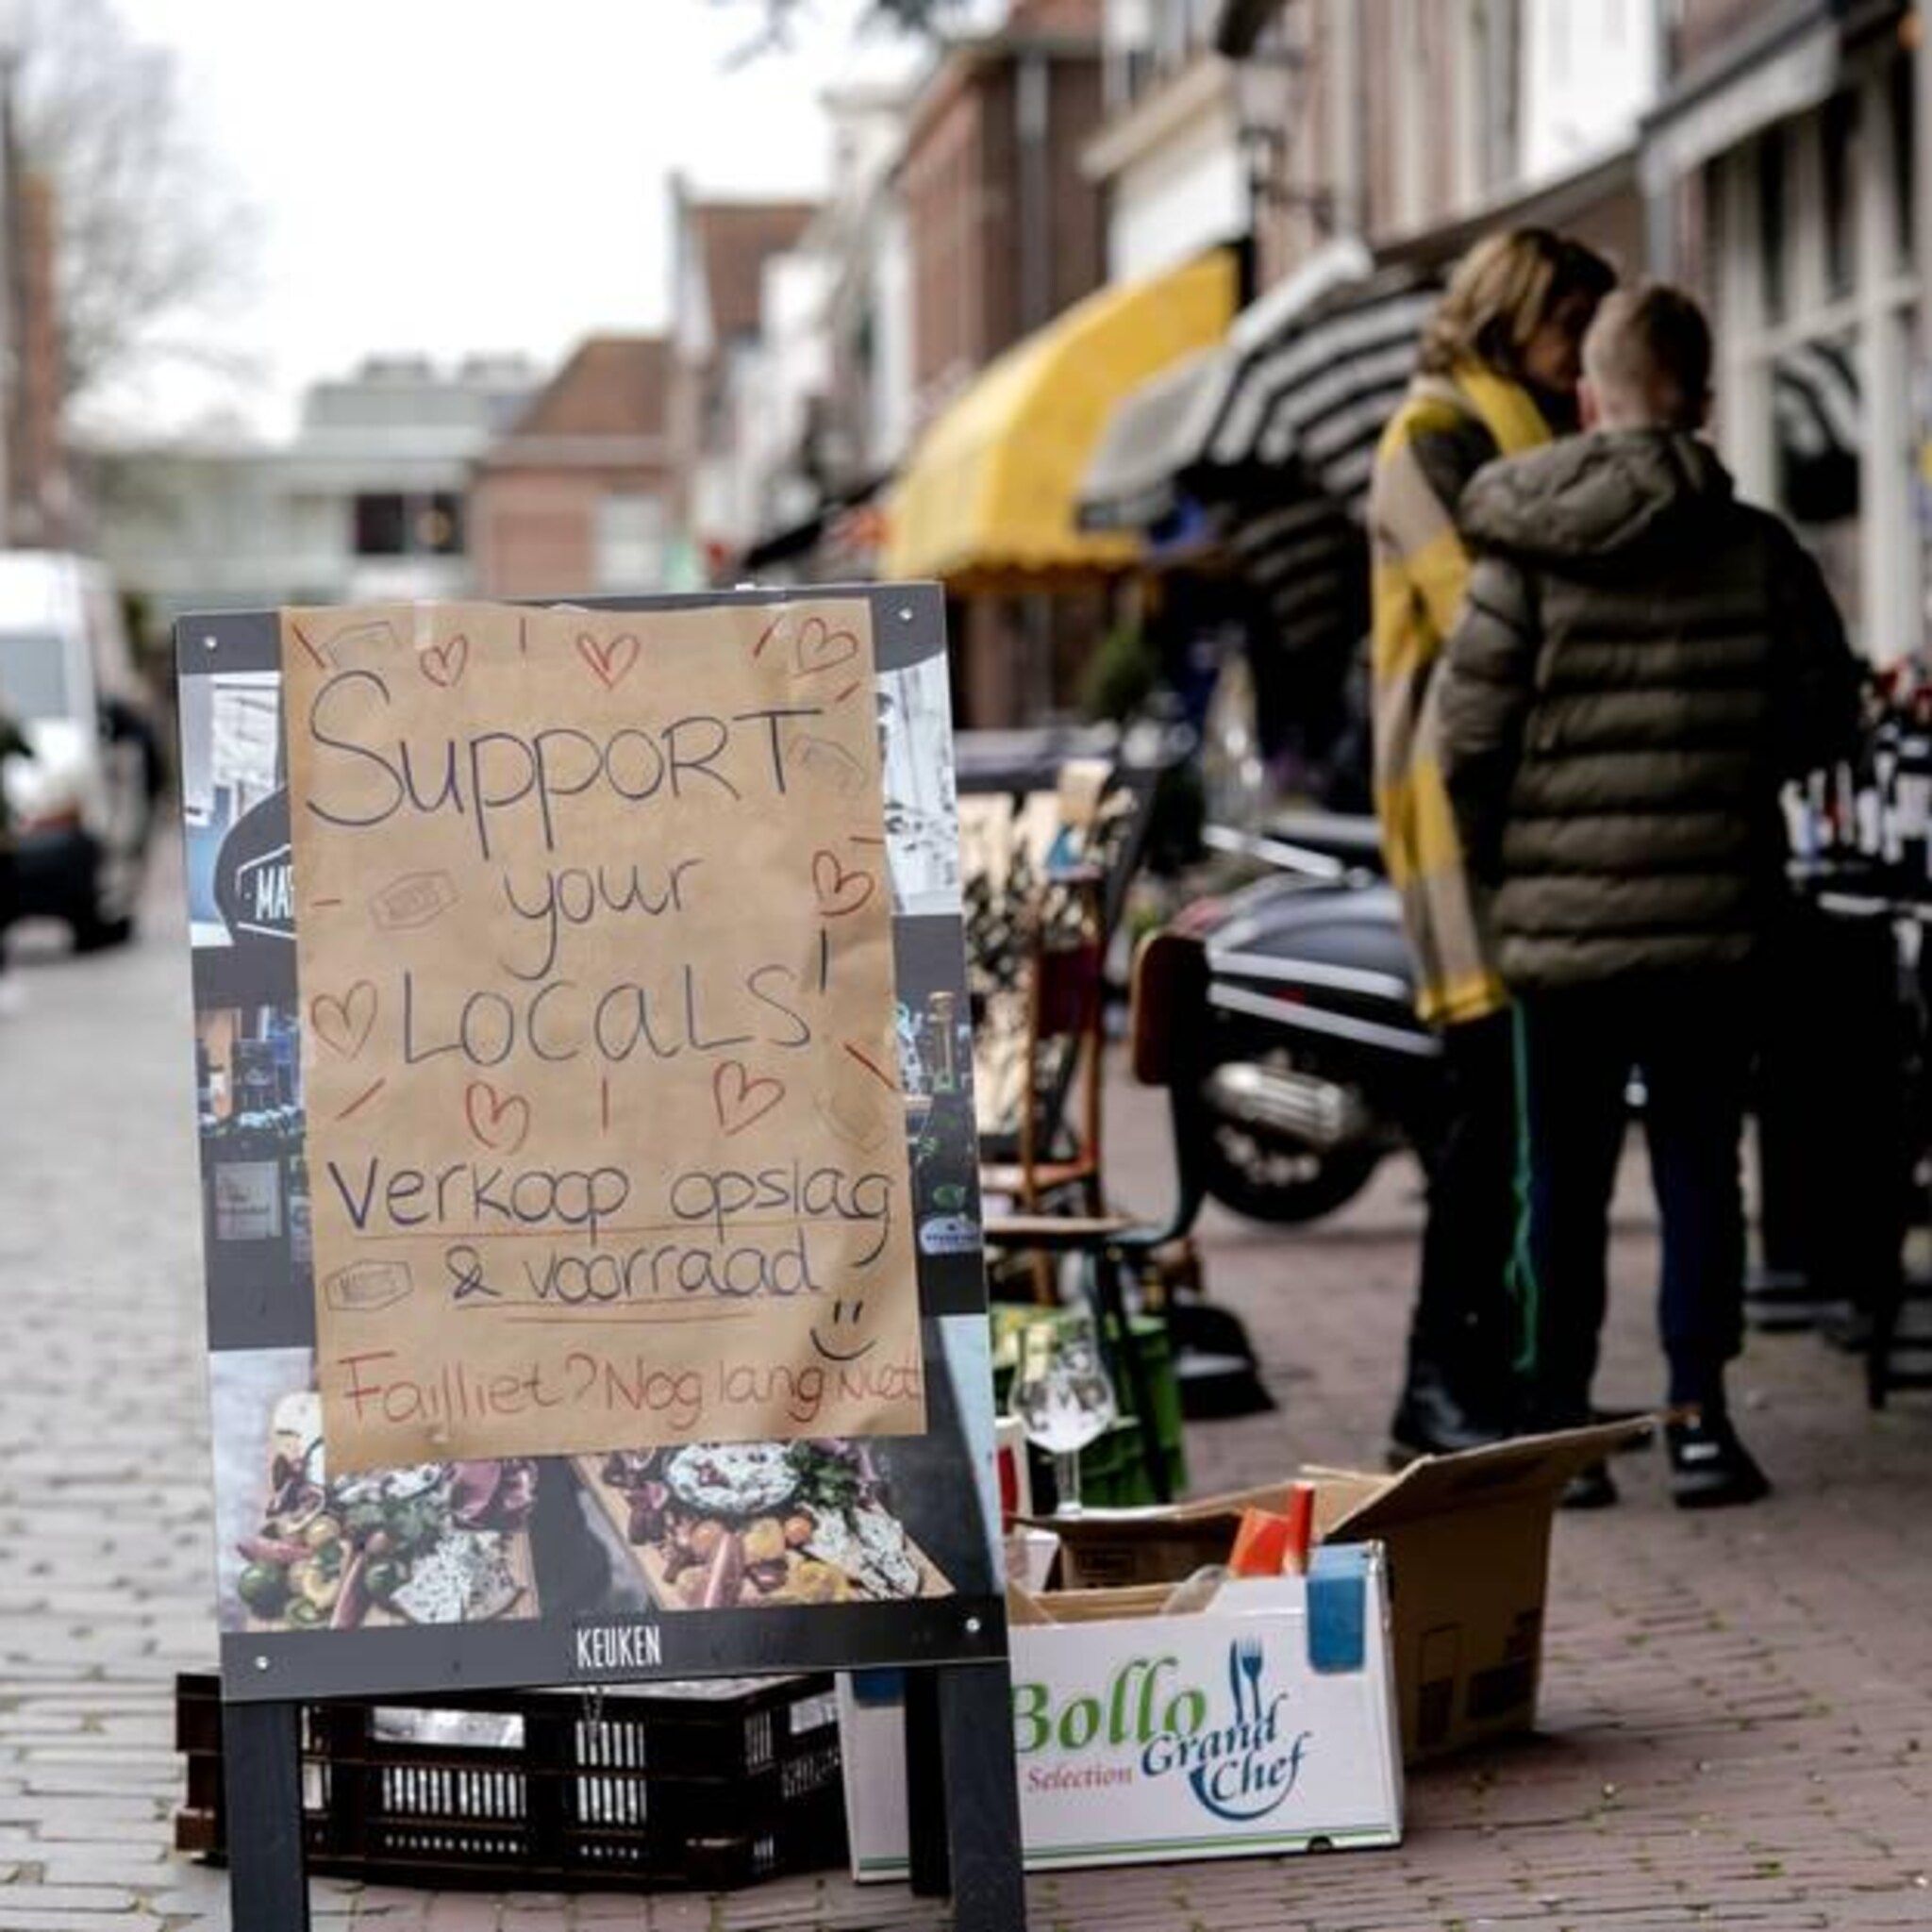 Support
your
Locals!
Verkoop opslag
& voorraad
Failliet? Nog lang niet
MA
KEUKEN
Bollo
Selection
Grand
Chef